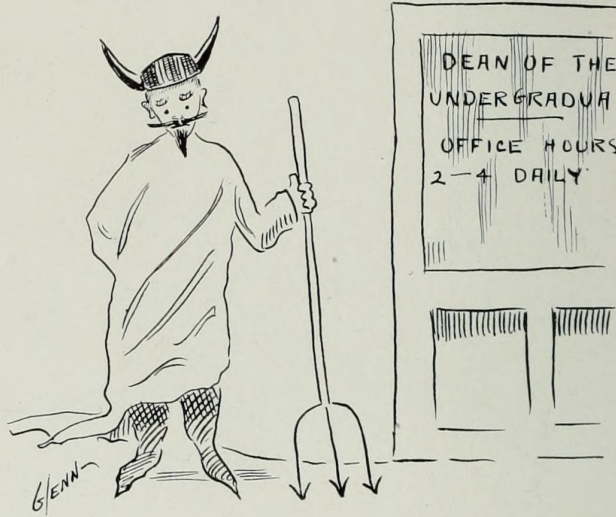 DEAN OF THE
UNDERGRADUA
OFFICE HOURS
2-4 DAILY
GLENN-